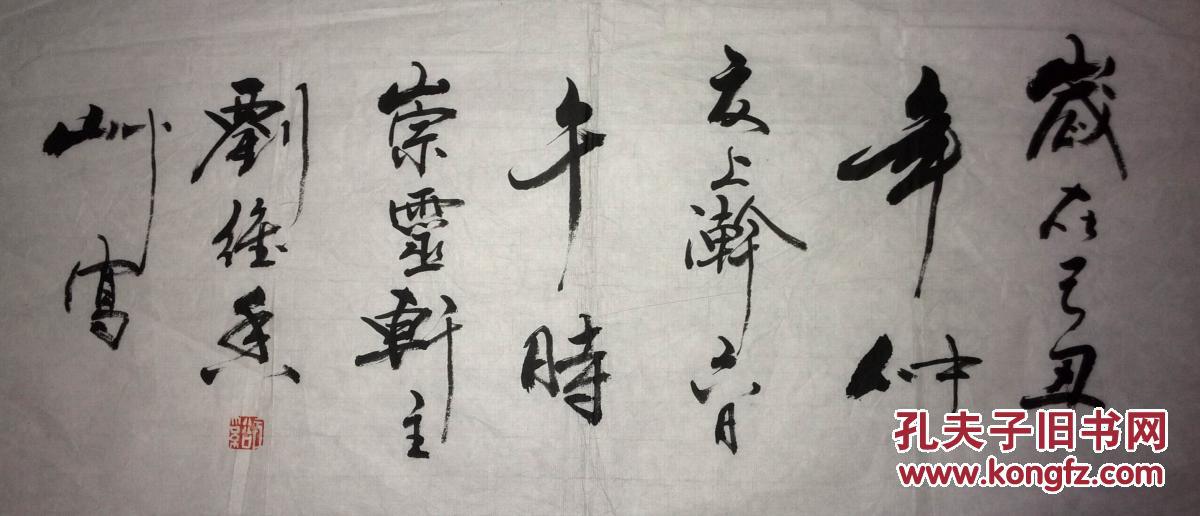 歲在己丑
年仲
夏上澣六月
午時
崇靈軒主
劉維
艸寫
孔夫子旧书网
www.kongfz.com